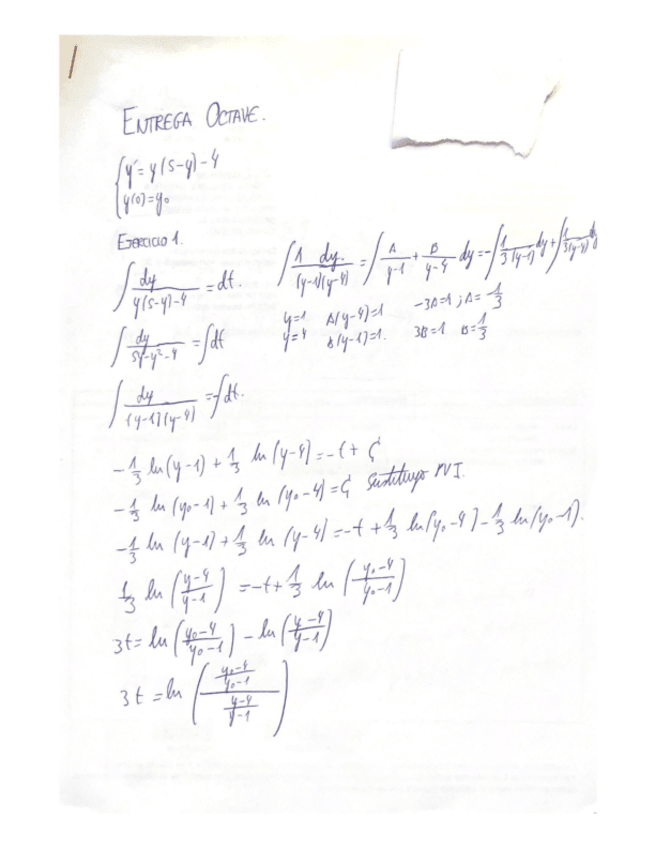 ENTREGA OCTAVE.
{ y' = y(5-y)-4
{ y(0)=y₀
EJERCICIO 1.
∫ dy / (y(5-y)-4) = dt.
∫ dy / (5y-y²-4) = ∫dt
∫ dy / ((y-1)(y-4)) = -∫dt.
∫ 1 dy. / ((y-1)(y-4)) = ∫ A/(y-1) + B/(y-4) dy = -∫ 1/(3(y-1)) dy + ∫ 1/(3(y-4)) dy
y=1 A(y-4)=1 -3A=1 ; A= -1/3
y=4 B(y-1)=1. 3B=1 B=1/3
-1/3 ln(y-1) + 1/3 ln(y-4) = -t + C₁
-1/3 ln(y₀-1) + 1/3 ln(y₀-4) = C₁ Sustituyo PVI.
-1/3 ln(y-1) + 1/3 ln(y-4) = -t + 1/3 ln(y₀-4) - 1/3 ln(y₀-1).
1/3 ln((y-4)/(y-1)) = -t + 1/3 ln((y₀-4)/(y₀-1))
3t = ln((y₀-4)/(y₀-1)) - ln((y-4)/(y-1))
3t = ln(((y₀-4)/(y₀-1))/((y-4)/(y-1)))